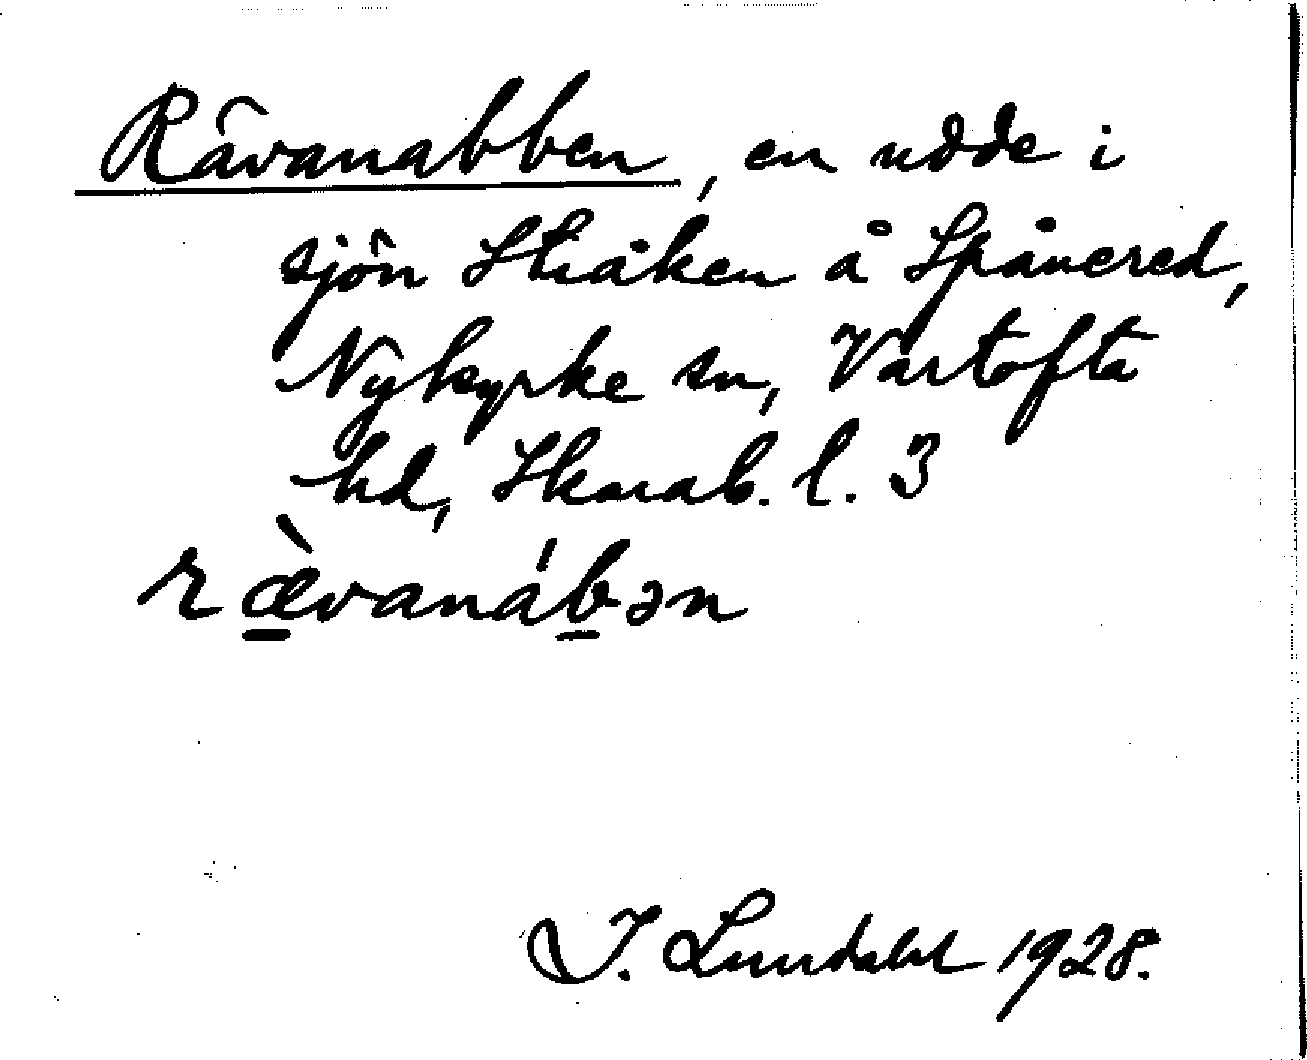 Rävanabben, en udde i
sjön Stråken å Spånered,
Nykyrke sn, Vartofta
hd, Skarab. l. 3
ræ̠̀vanáb̠ən
I. Lundahl 1928.